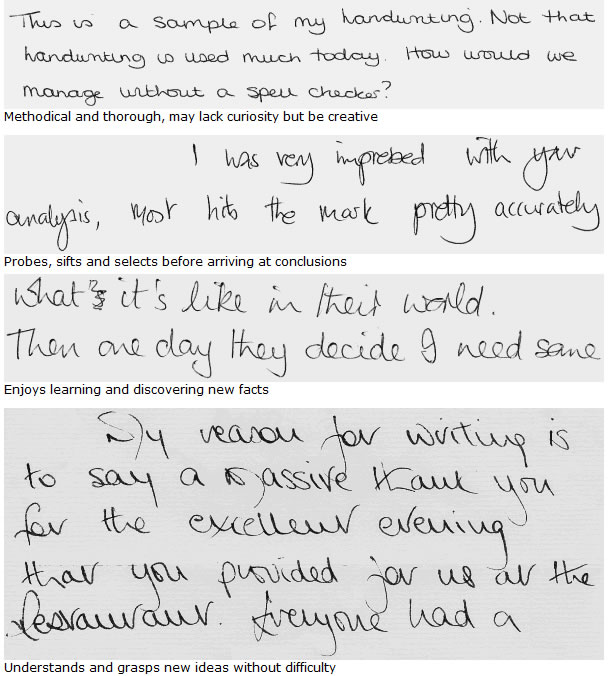 This is a sample of my handwriting. Not that
handwriting is used much today. How would we
manage without a spell checker?
Methodical and thorough, may lack curiosity but be creative
I was very impressed with your
analysis, most hits the mark pretty accurately
Probes, sifts and selects before arriving at conclusions
What's it's like in their world.
Then one day they decide I need some
Enjoys learning and discovering new facts
My reason for writing is
to say a massive thank you
for the excellent evening
that you provided for us at the
Restaurant. Everyone had a
Understands and grasps new ideas without difficulty